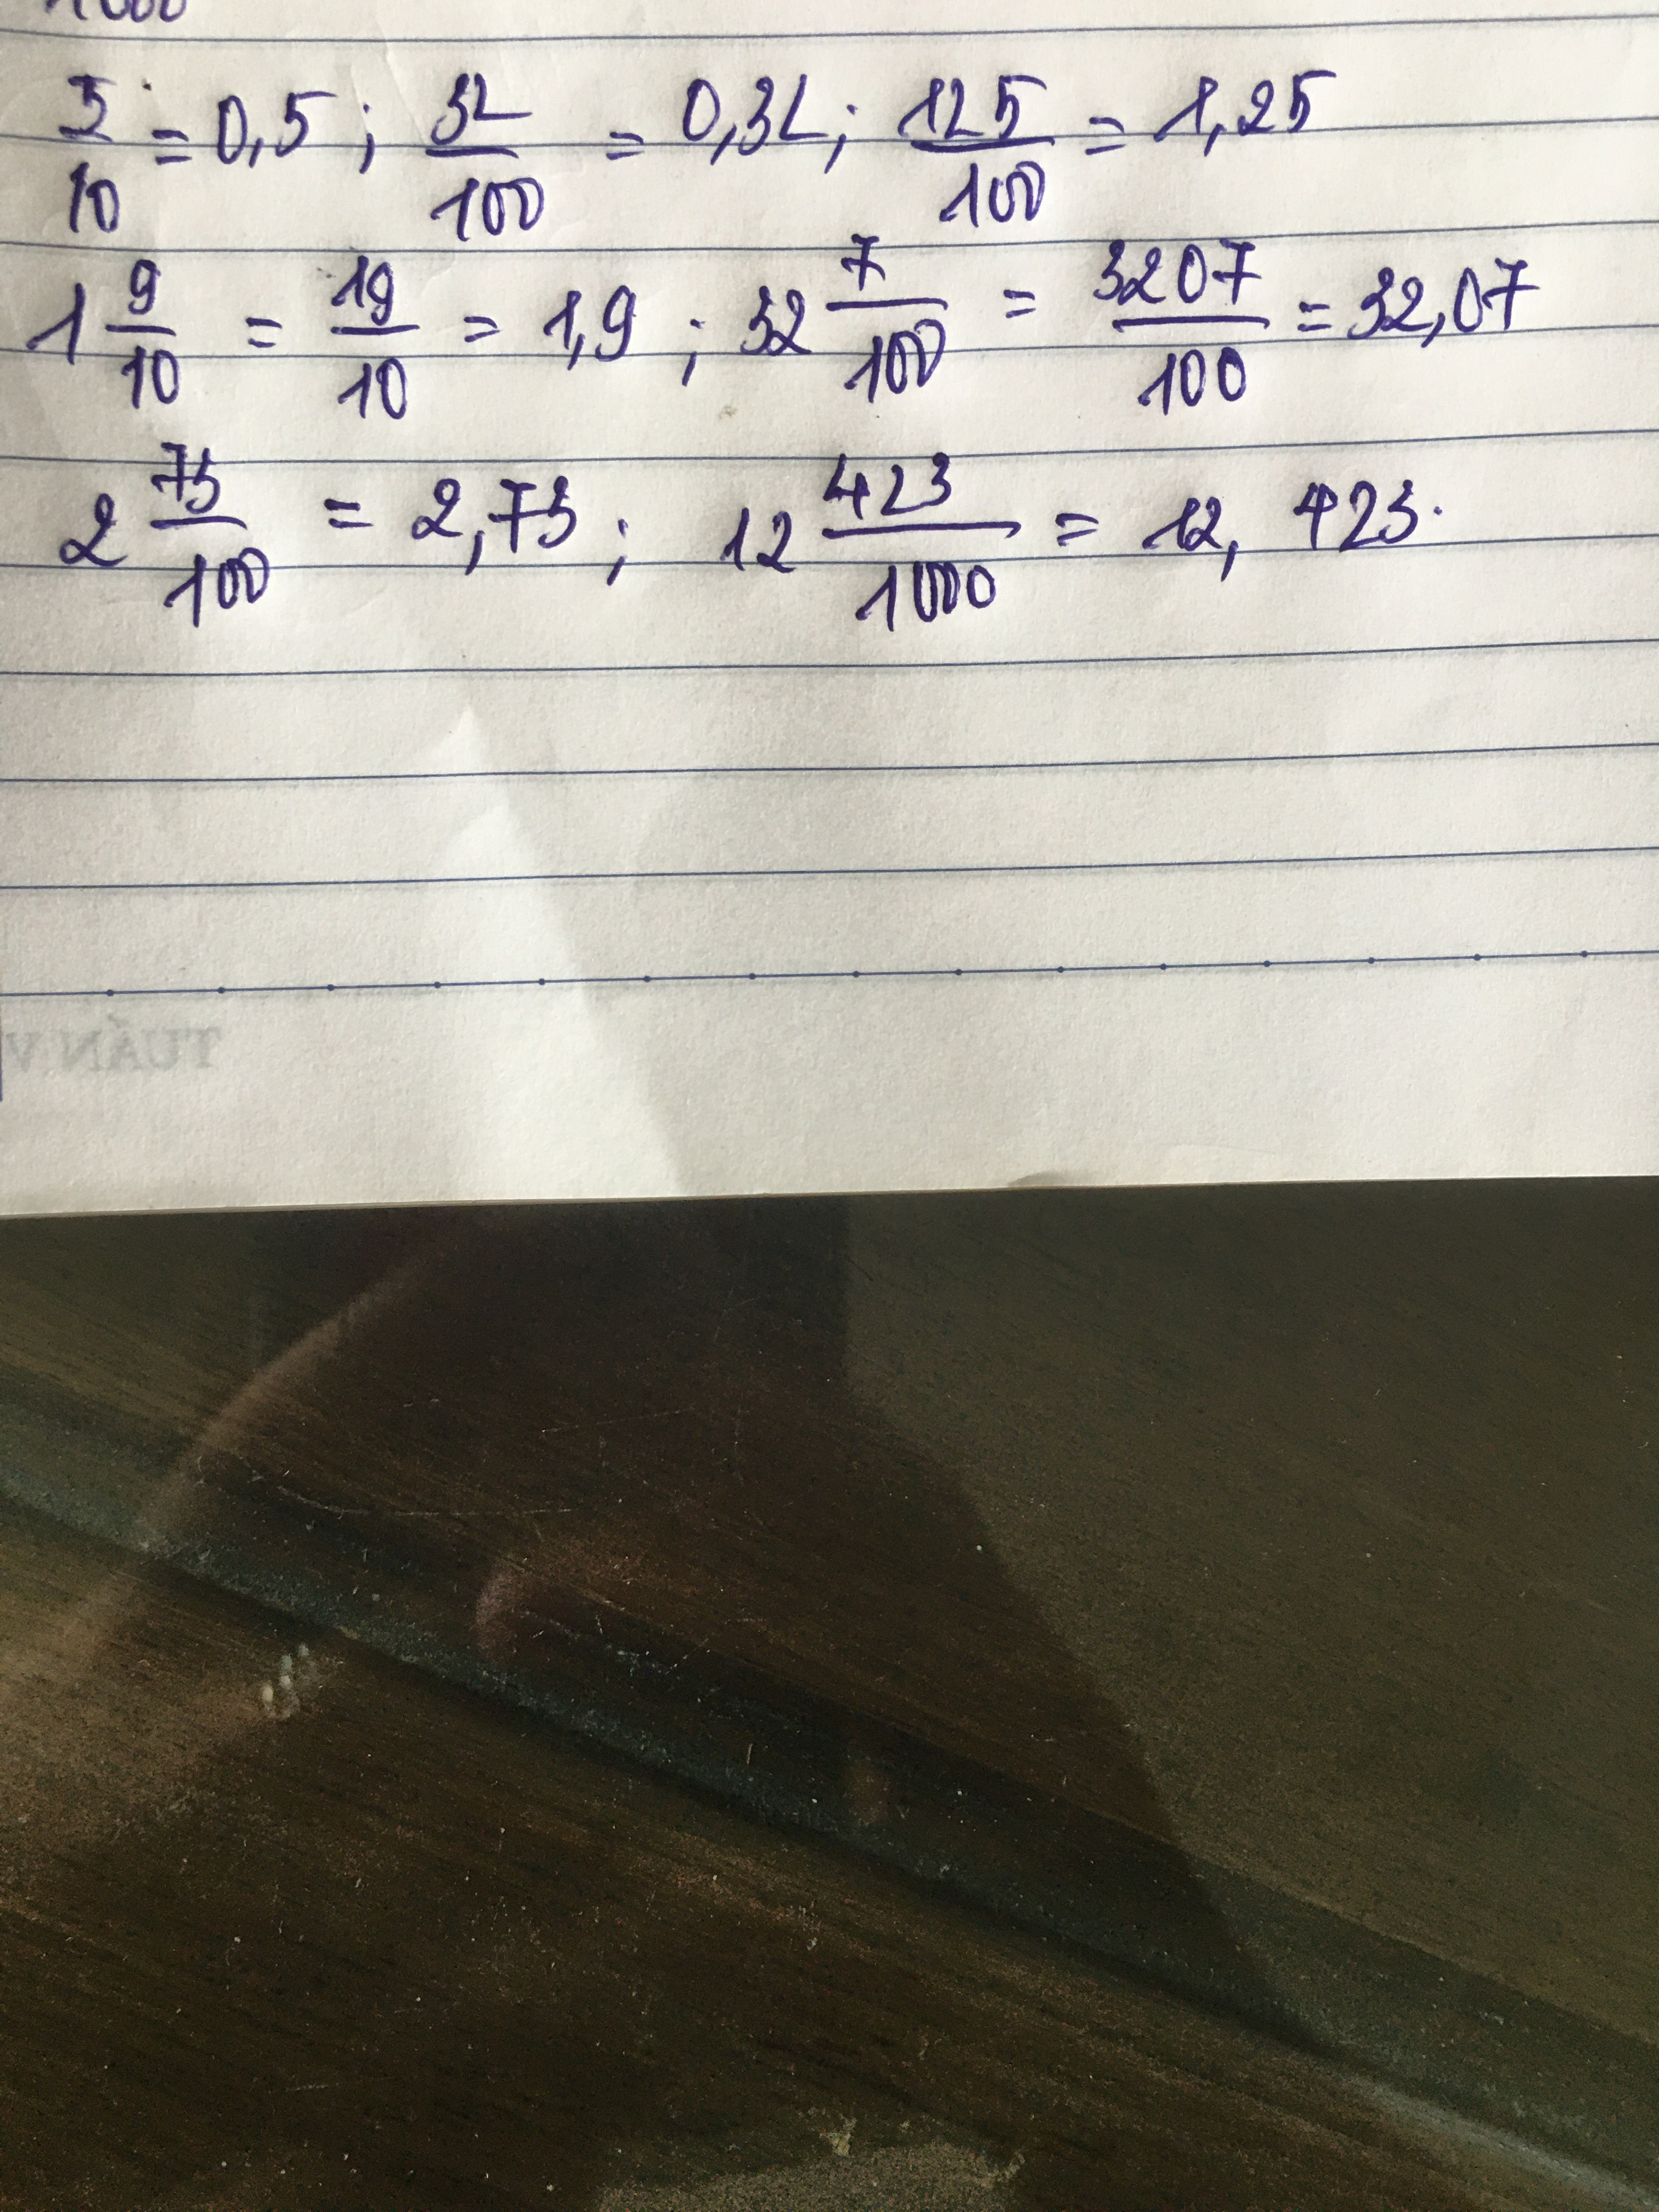 1000
5/10 = 0,5 ; 32/100 = 0,32 ; 125/100 = 1,25
1 9/10 = 19/10 = 1,9 ; 32 7/100 = 3207/100 = 32,07
2 73/100 = 2,73 ; 12 423/1000 = 12, 423.
TUẤN V